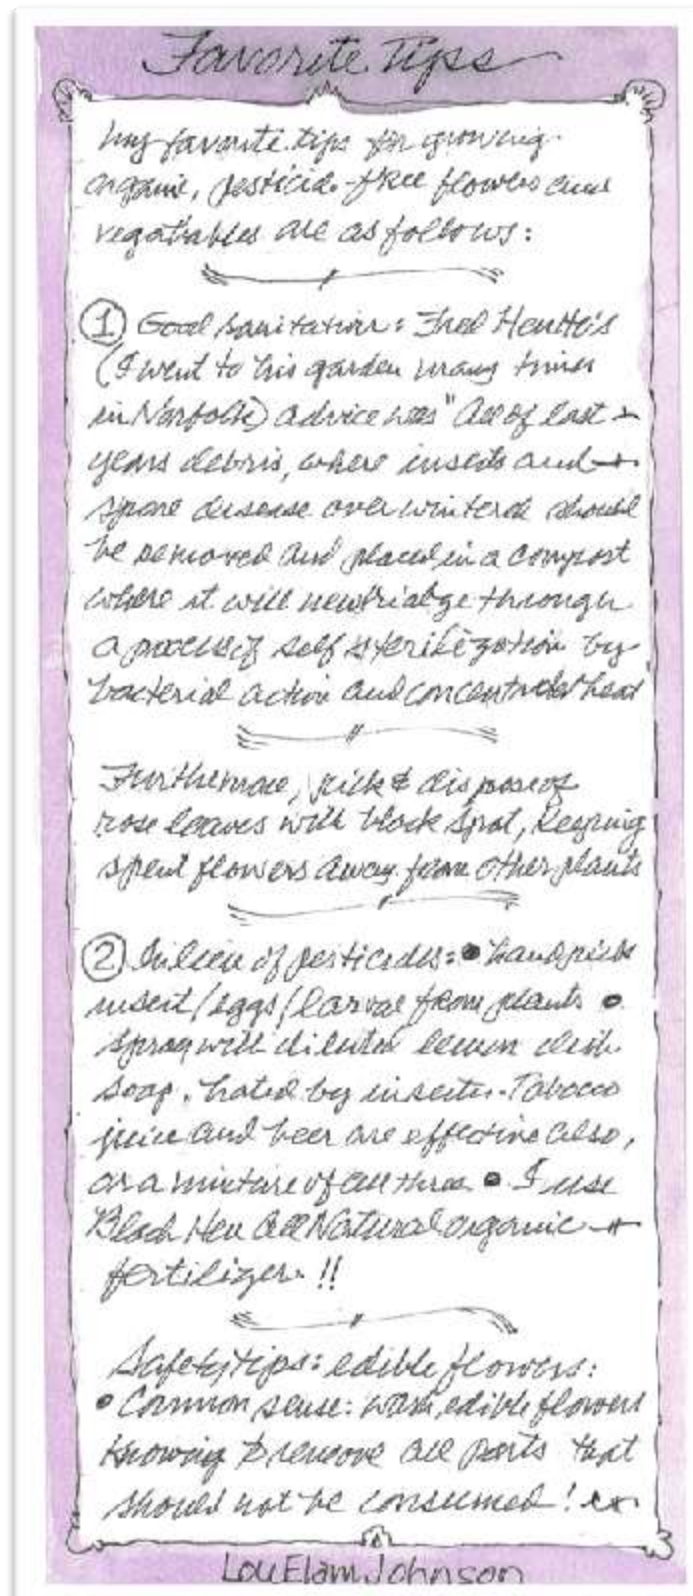 Favorite Tips
My favorite tips for growing
organic, pesticide-free flowers and
vegatables are as follows:
① Good sanitation: Fred Heutte's
(I went to his garden many times
in Norfolk) advice was "All of last
years debris, where insects and
spore disease over wintered should
be removed and placed in a compost
where it will newtrialize through
a process of self sterilization by
bacterial action and concentrated heat"
Furthermore, pick & dispose of
rose leaves with black spot, keeping
spent flowers away from other plants
② In lieu of pesticides: • hand pick
insect/eggs/larvae from plants •
spray with diluted lemon dish
soap. hated by insects. Tobacco
juice and beer are effective also,
or a mixture of all three. • I use
Black Hen All Natural organic
fertilizer. !!
Safety tips: edible flowers:
• Common sense: wash, edible flowers
knowing to remove all parts that
should not be consumed!
Lou Elam Johnson